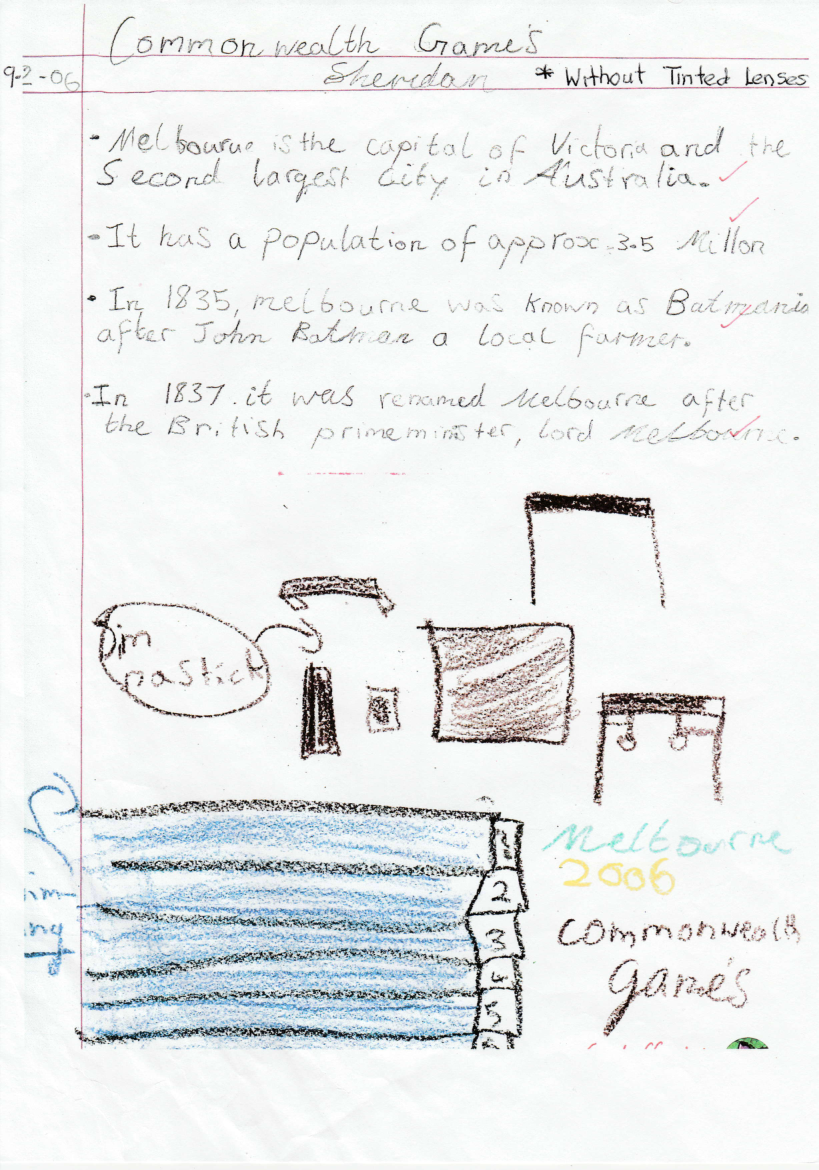 Commonwealth Game's
9-2-06
Sheridan * Without Tinted Lenses
• Melbourne is the capital of Victoria and the
Second largest City in Australia.
- It has a population of approx. 3.5 Millon
• In 1835, melbourne was known as Batmania
after John Batman a local farmer.
• In 1837. it was renamed Melbourne after
the British primeminister, lord Melbourne.
Jim
nastick
1
2
3
4
5
Melbourne
2006
Commonwealth
game's